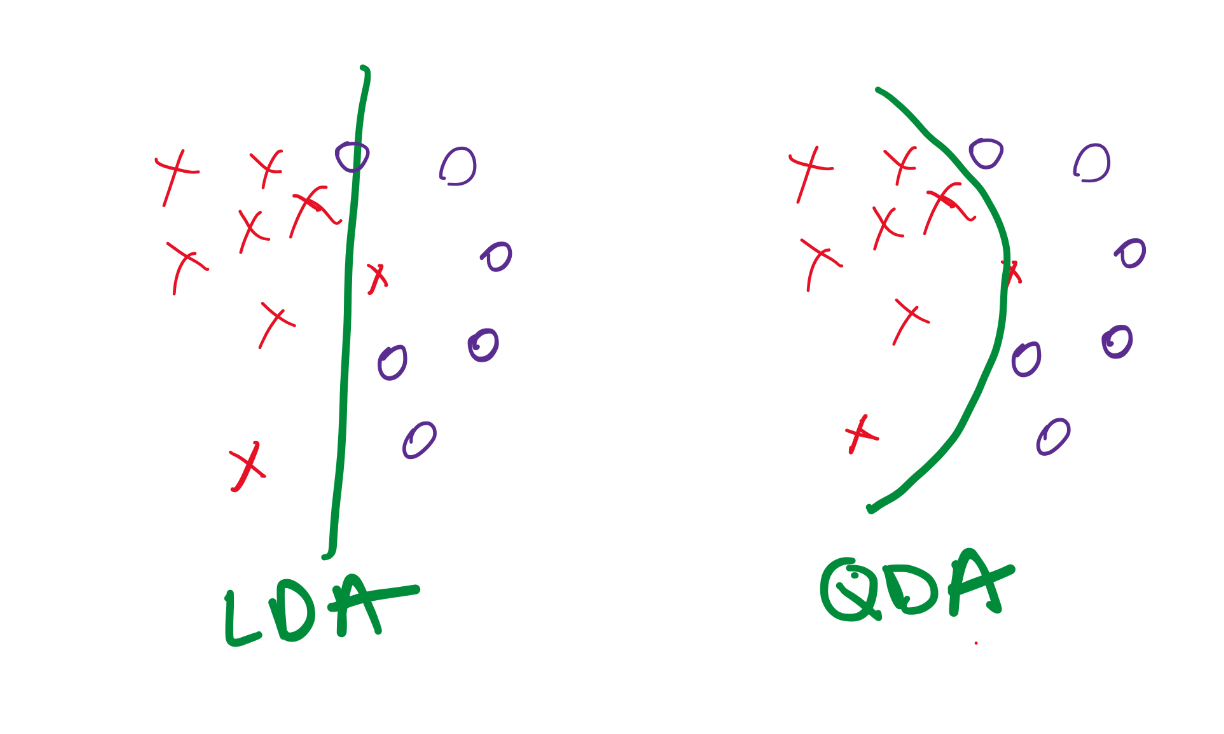 LDA
QDA